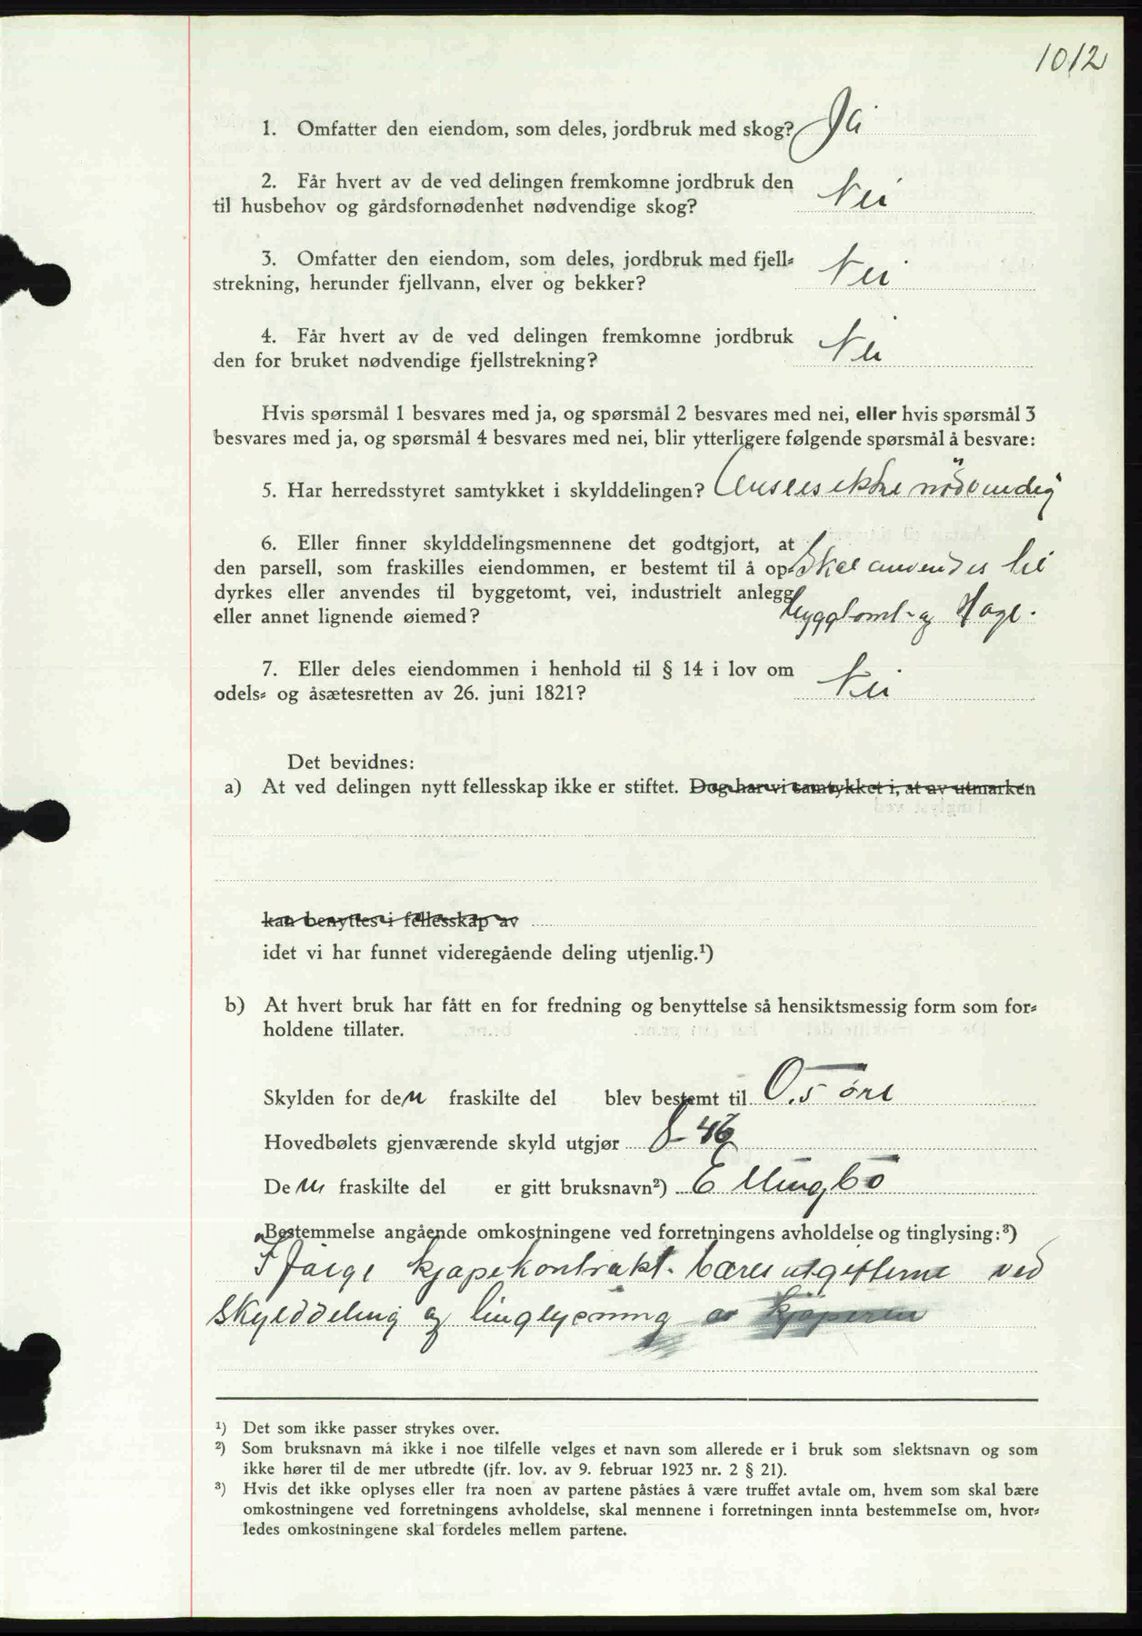 1012
1. Omfatter den eiendom, som deles, jordbruk med skog? Ja
2. Får hvert av de ved delingen fremkomne jordbruk den
til husbehov og gårdsfornødenhet nødvendige skog? Nei
3. Omfatter den eiendom, som deles, jordbruk med fjell-
strekning, herunder fjellvann, elver og bekker? Nei
4. Får hvert av de ved delingen fremkomne jordbruk
den for bruket nødvendige fjellstrekning? Nei
Hvis spørsmål 1 besvares med ja, og spørsmål 2 besvares med nei, eller hvis spørsmål 3
besvares med ja, og spørsmål 4 besvares med nei, blir ytterligere følgende spørsmål å besvare:
5. Har herredsstyret samtykket i skylddelingen? Ansees ikke nödvendig
6. Eller finner skylddelingsmennene det godtgjort, at
den parsell, som fraskilles eiendommen, er bestemt til å op- Skal anvendes til
dyrkes eller anvendes til byggetomt, vei, industrielt anlegg
eller annet lignende øiemed? byggtomt og Hage.
7. Eller deles eiendommen i henhold til § 14 i lov om
odels- og åsætesretten av 26. juni 1821? Nei
Det bevidnes:
a) At ved delingen nytt fellesskap ikke er stiftet. Dog har vi samtykket i, at av utmarken
kan benyttes i fellesskap av
idet vi har funnet videregående deling utjenlig.¹)
b) At hvert bruk har fått en for fredning og benyttelse så hensiktsmessig form som for-
holdene tillater.
Skylden for den fraskilte del blev bestemt til 0.5 öre
Hovedbølets gjenværende skyld utgjør 8-46
Den fraskilte del er gitt bruksnavn²) Ellingbö
Bestemmelse angående omkostningene ved forretningens avholdelse og tinglysing:³)
Ifölge kjøpekontrakt. bæres utgifterne ved
Skylddeling og tinglysning av kjöperen
¹) Det som ikke passer strykes over.
²) Som bruksnavn må ikke i noe tilfelle velges et navn som allerede er i bruk som slektsnavn og som
ikke hører til de mer utbredte (jfr. lov. av 9. februar 1923 nr. 2 § 21).
³) Hvis det ikke oplyses eller fra noen av partene påståes å være truffet avtale om, hvem som skal bære
omkostningene ved forretningens avholdelse, skal mennene i forretningen innta bestemmelse om, hvor-
ledes omkostningene skal fordeles mellem partene.